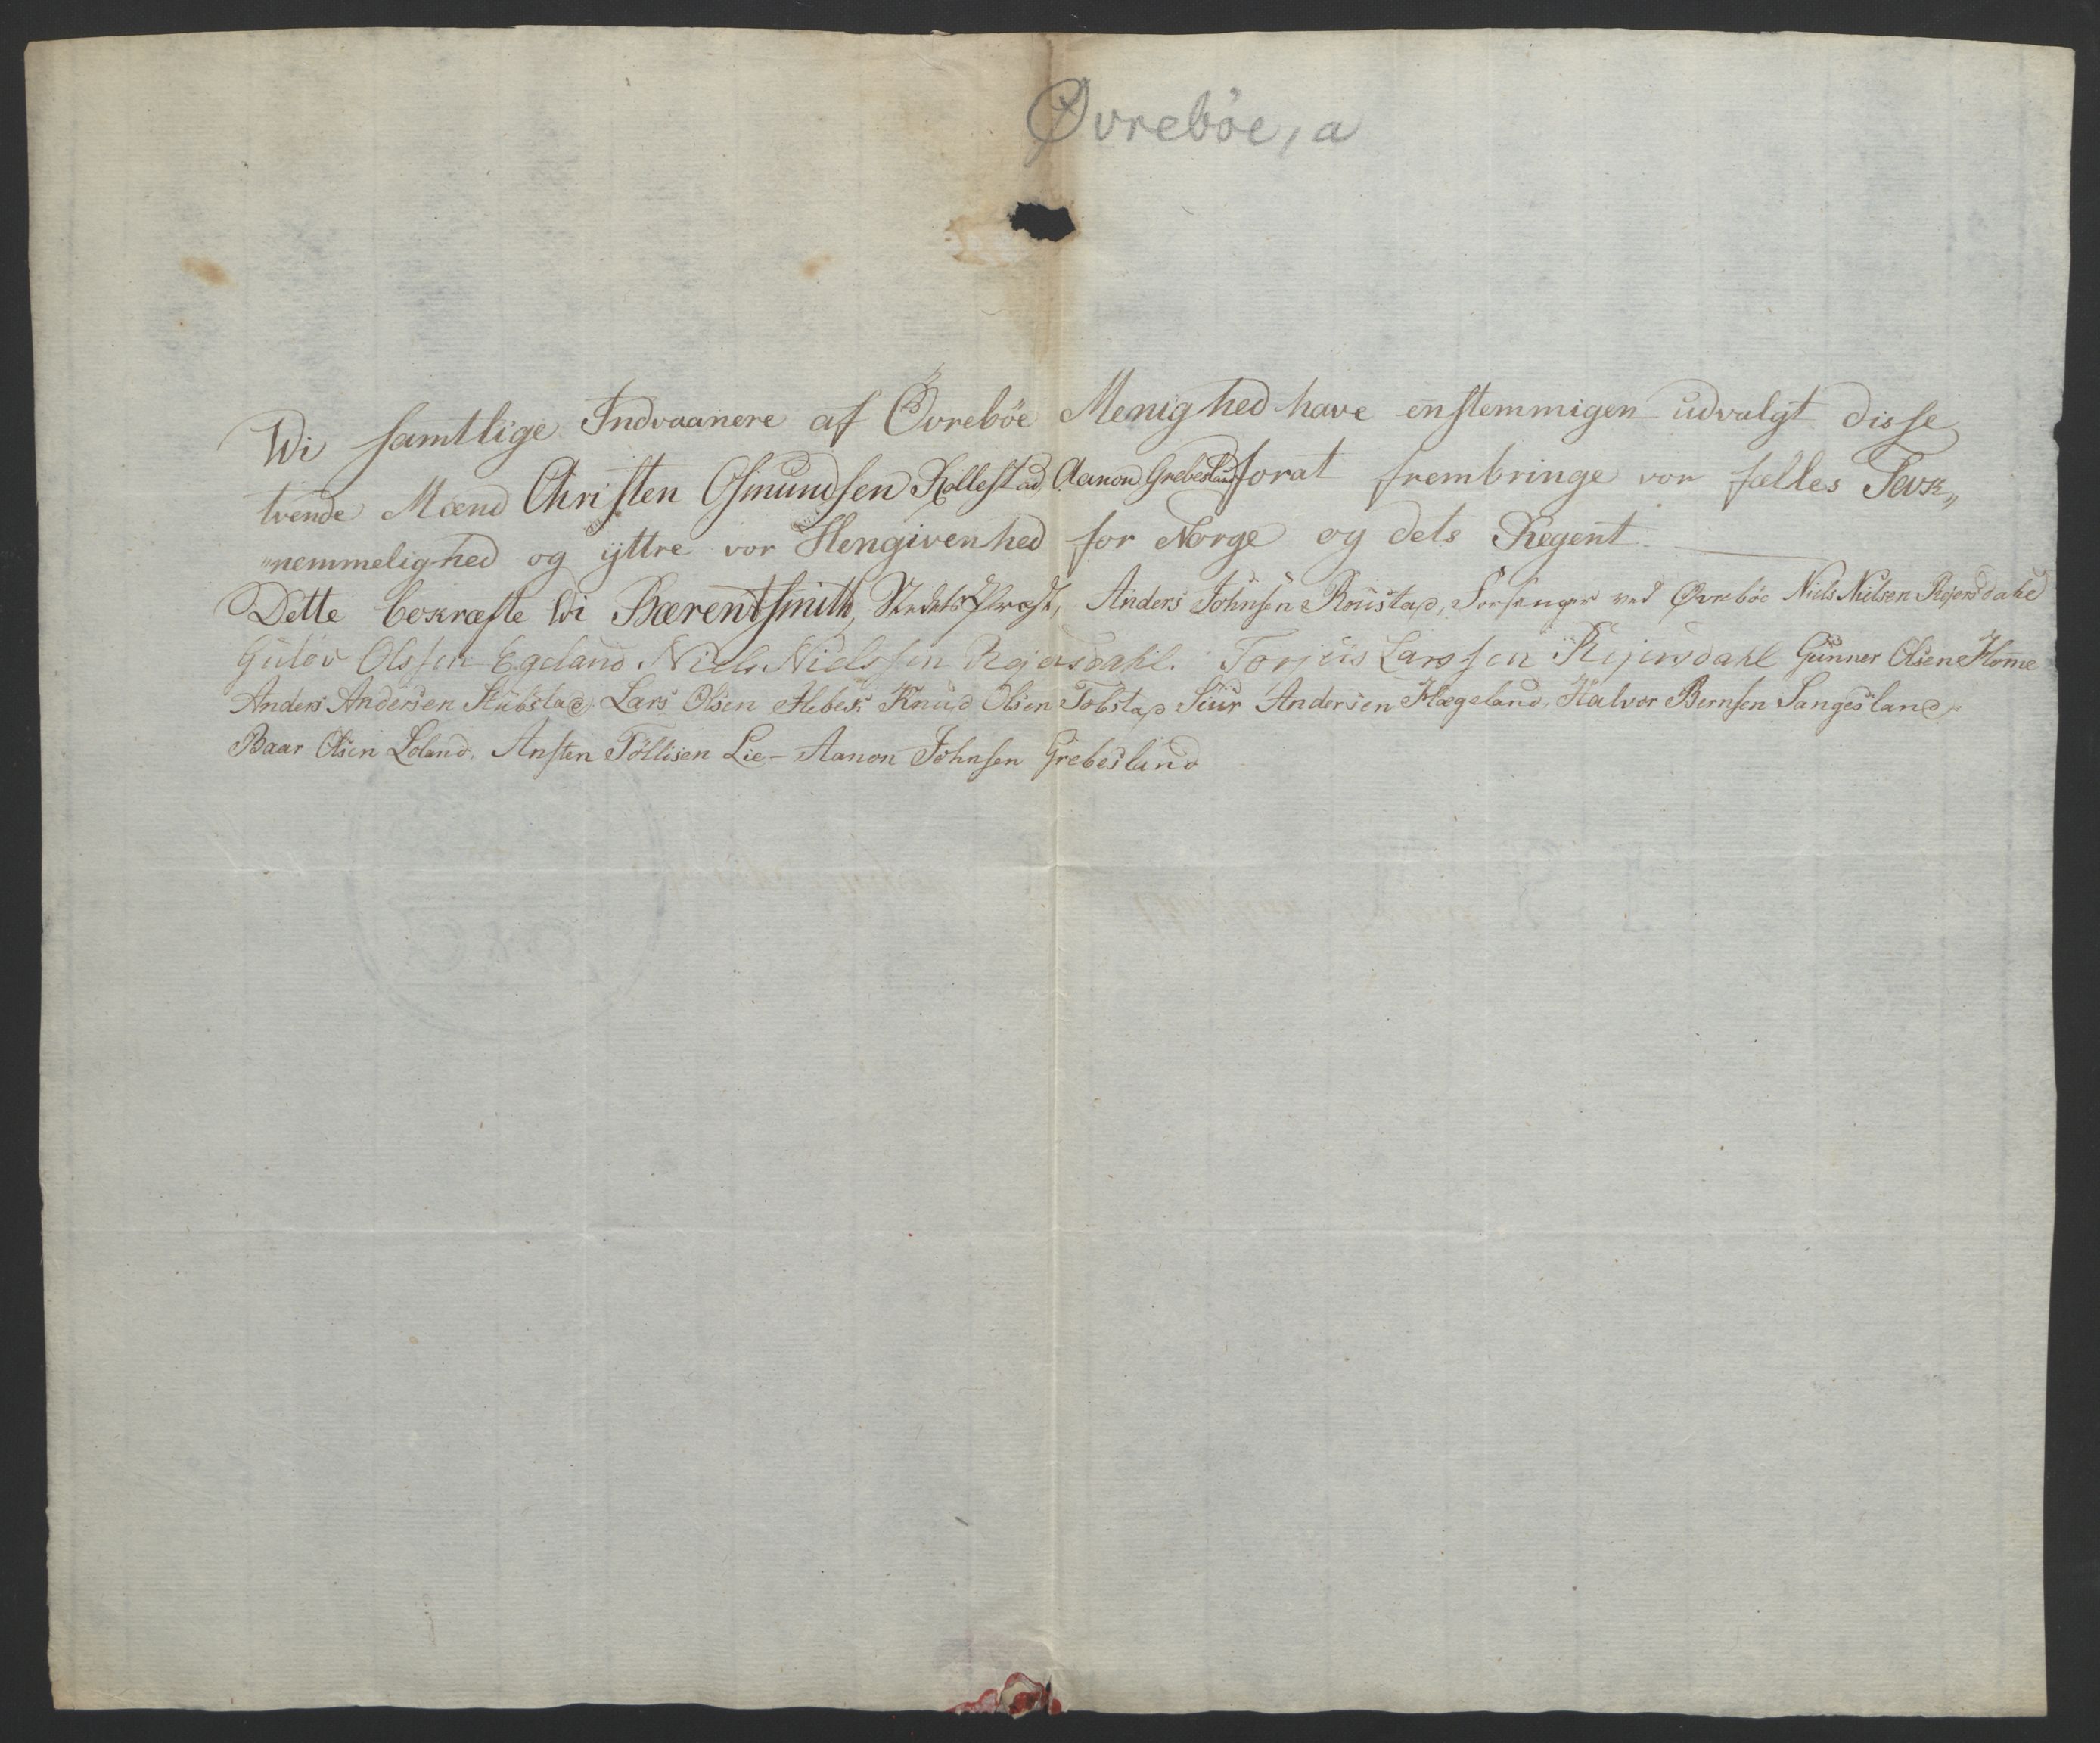 Øvrebøe, a
Wi samtlige Indvaanere af Øvrebøe Menighed have enstemmigen udvalgt disse
tvende Mænd Christen Osmundsen Kollestad Aanon Grebesland forat frembringe vor fælles Tavk„
„nemmelighed og ÿttre vor Hengivenhed for Norge og dets Regent
Dette bekræfte Wi Bærent Smith, Stedets Præst, Anders Johnsen Roustad, Forsanger ved Øvrebøe Niels Nielsen Rejersdahl
Guløv Olssen Egeland Niels Nielssen Rejersdahl. Torjuis Larssen Rejersdahl Gunner Olsen Home
Anders Andersen Stubstad Lars Olsen Hebek Knud Olsen Tobstad Siur Andersen Hægeland, Halvor Bernsen Sangesland
Baar Olsen Loland. Ansten Tollisen Lie - Aanon Johnsen Grebesland